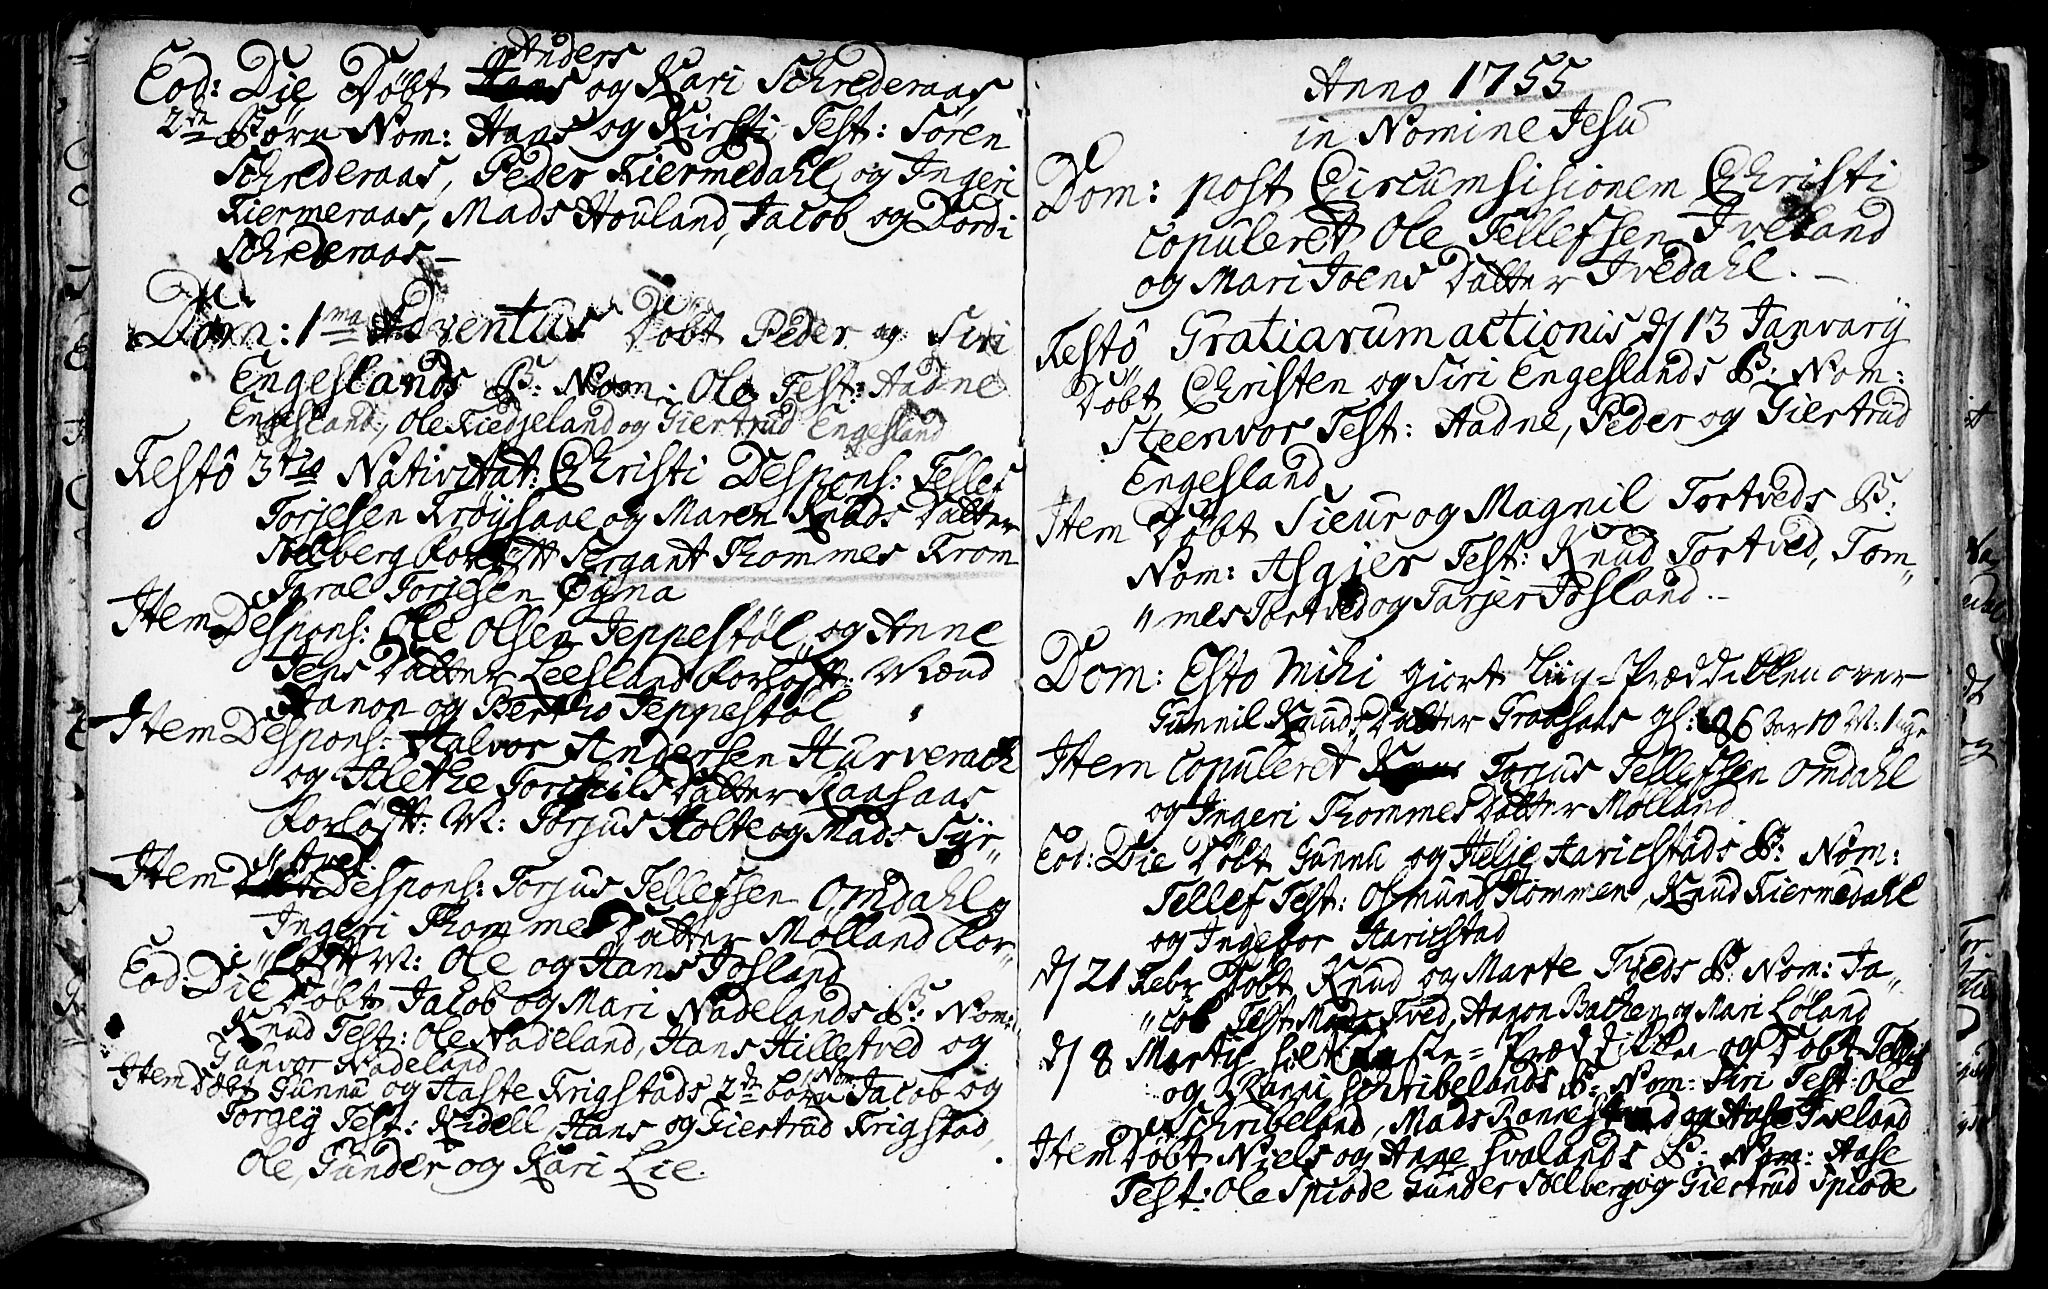 Anders
Eod: Die Döbt og Kari Schrederaas
2de Börn Nom: Hans og Kirsti Test: Sören
Schrederaas, Peder Kiermedahl og Ingeri
Kiermeraas, Mads Houland, Jacob og Dordi
Schrederaas –
Dom: 1ma Adventus Döbt Peder og Siri
Engeslands B: Nom: Ole Test: Aadne
Engesland, Ole Kiedjeland og Giertrud Engesland
Festô 3tio Nativitat: Christi Despons: Tellef
Torjesen Frøysaae og Maren Knuds Datter
Soelberg Sergant Thommes From
Torjesen Øgna
Item Despons: Ole Olsen Jeppestöl og Anne
Jens Datter Leesland Forlofft: Mænd
Aanon og Jeppestöl
Item Despons: Halvor Andersen Hurverack
og Alethe Torchils Datter Raasaas
Forlofft: M: Torjus Holte og Mads Syr„
Item Despons: Torjus Tellefsen Omdahl og
Ingeri Thommes Datter Mølland For„
„lofft M: Ole og Hans Josland
Eod: Die Döbt Jacob og Mari Nadelands B: Nom:
Knud Test: Ole Nadeland, Hans Hilletved og
Gunvor Nadeland
Item Döbt Gunnu og Aaste Frigstads 2de börn Nom: Jacob og
Torgey Test: Kidell, Hans og Giertrud Frigstad,
Ole, Gunder og Kari Lie.
Anno 1755
in Nomine Jesu
Dom: post Circumsisionem Christi
Copuleret Ole Tellefsen Iveland
og Mari Joens Datter Ivedahl. –
Festô Gratiarumactionis d/ 13 Janvarij
Döbt Christen og Siri Engeslands B: Nom:
Steenvor Test: Aadne, Peder og Giertrud
Engesland
Item Döbt Sieur og Magnil Tortveds B:
Nom: Asgier Test: Knud Tortved, Tom„
„mes Tortved og Tarjer Josland. –
Dom: Esto Mihi giort Liig-Præddikken over
Gunnil Knuds Datter Graasaas gl: 86 Aar 10 M: 1 uge
Item Copuleret Torjus Tellefsen Omdahl
og Ingeri Thommes Datter Mølland.
Eod: Die Döbt Gunnu og Helje Harichstads B: Nom:
Tellef Test: Osmund Hommen, Knud Kiermedahl
og Ingebor Harichstad
d/ 21 Febr Döbt Knud og Marte Tveds B: Nom: Ja„
„cob Test: Mads Tved, Aanon Backen og Mari Løland
d/ 8 Martij Faste-Præddikken og Döbt Tellef
og Ranni Schribelands B: Nom: Siri Test: Ole
Schribeland, Mads og Aase Iveland
Item Döbt Niels og Anne Hvalands B: Nom: Aase
Test: Ole Spiode Gunder Soelberg og Giertrud Spiode